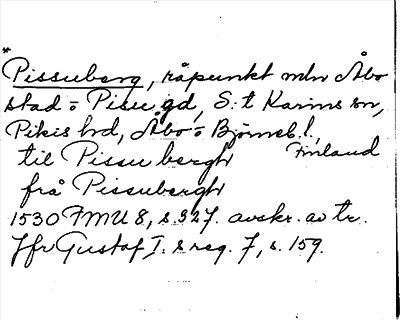 * Pissuberg, råpunkt mln Åbo
stad o Pisu gd, S:t Karins sn,
Pikis hd, Åbo o Björneb. l.,
Finland
til Pissu bergh
frå Pissubergh
1530 FMU 8, s. 327. avskr. av tr.
Jfr Gustaf I:s reg. 7, s. 159.